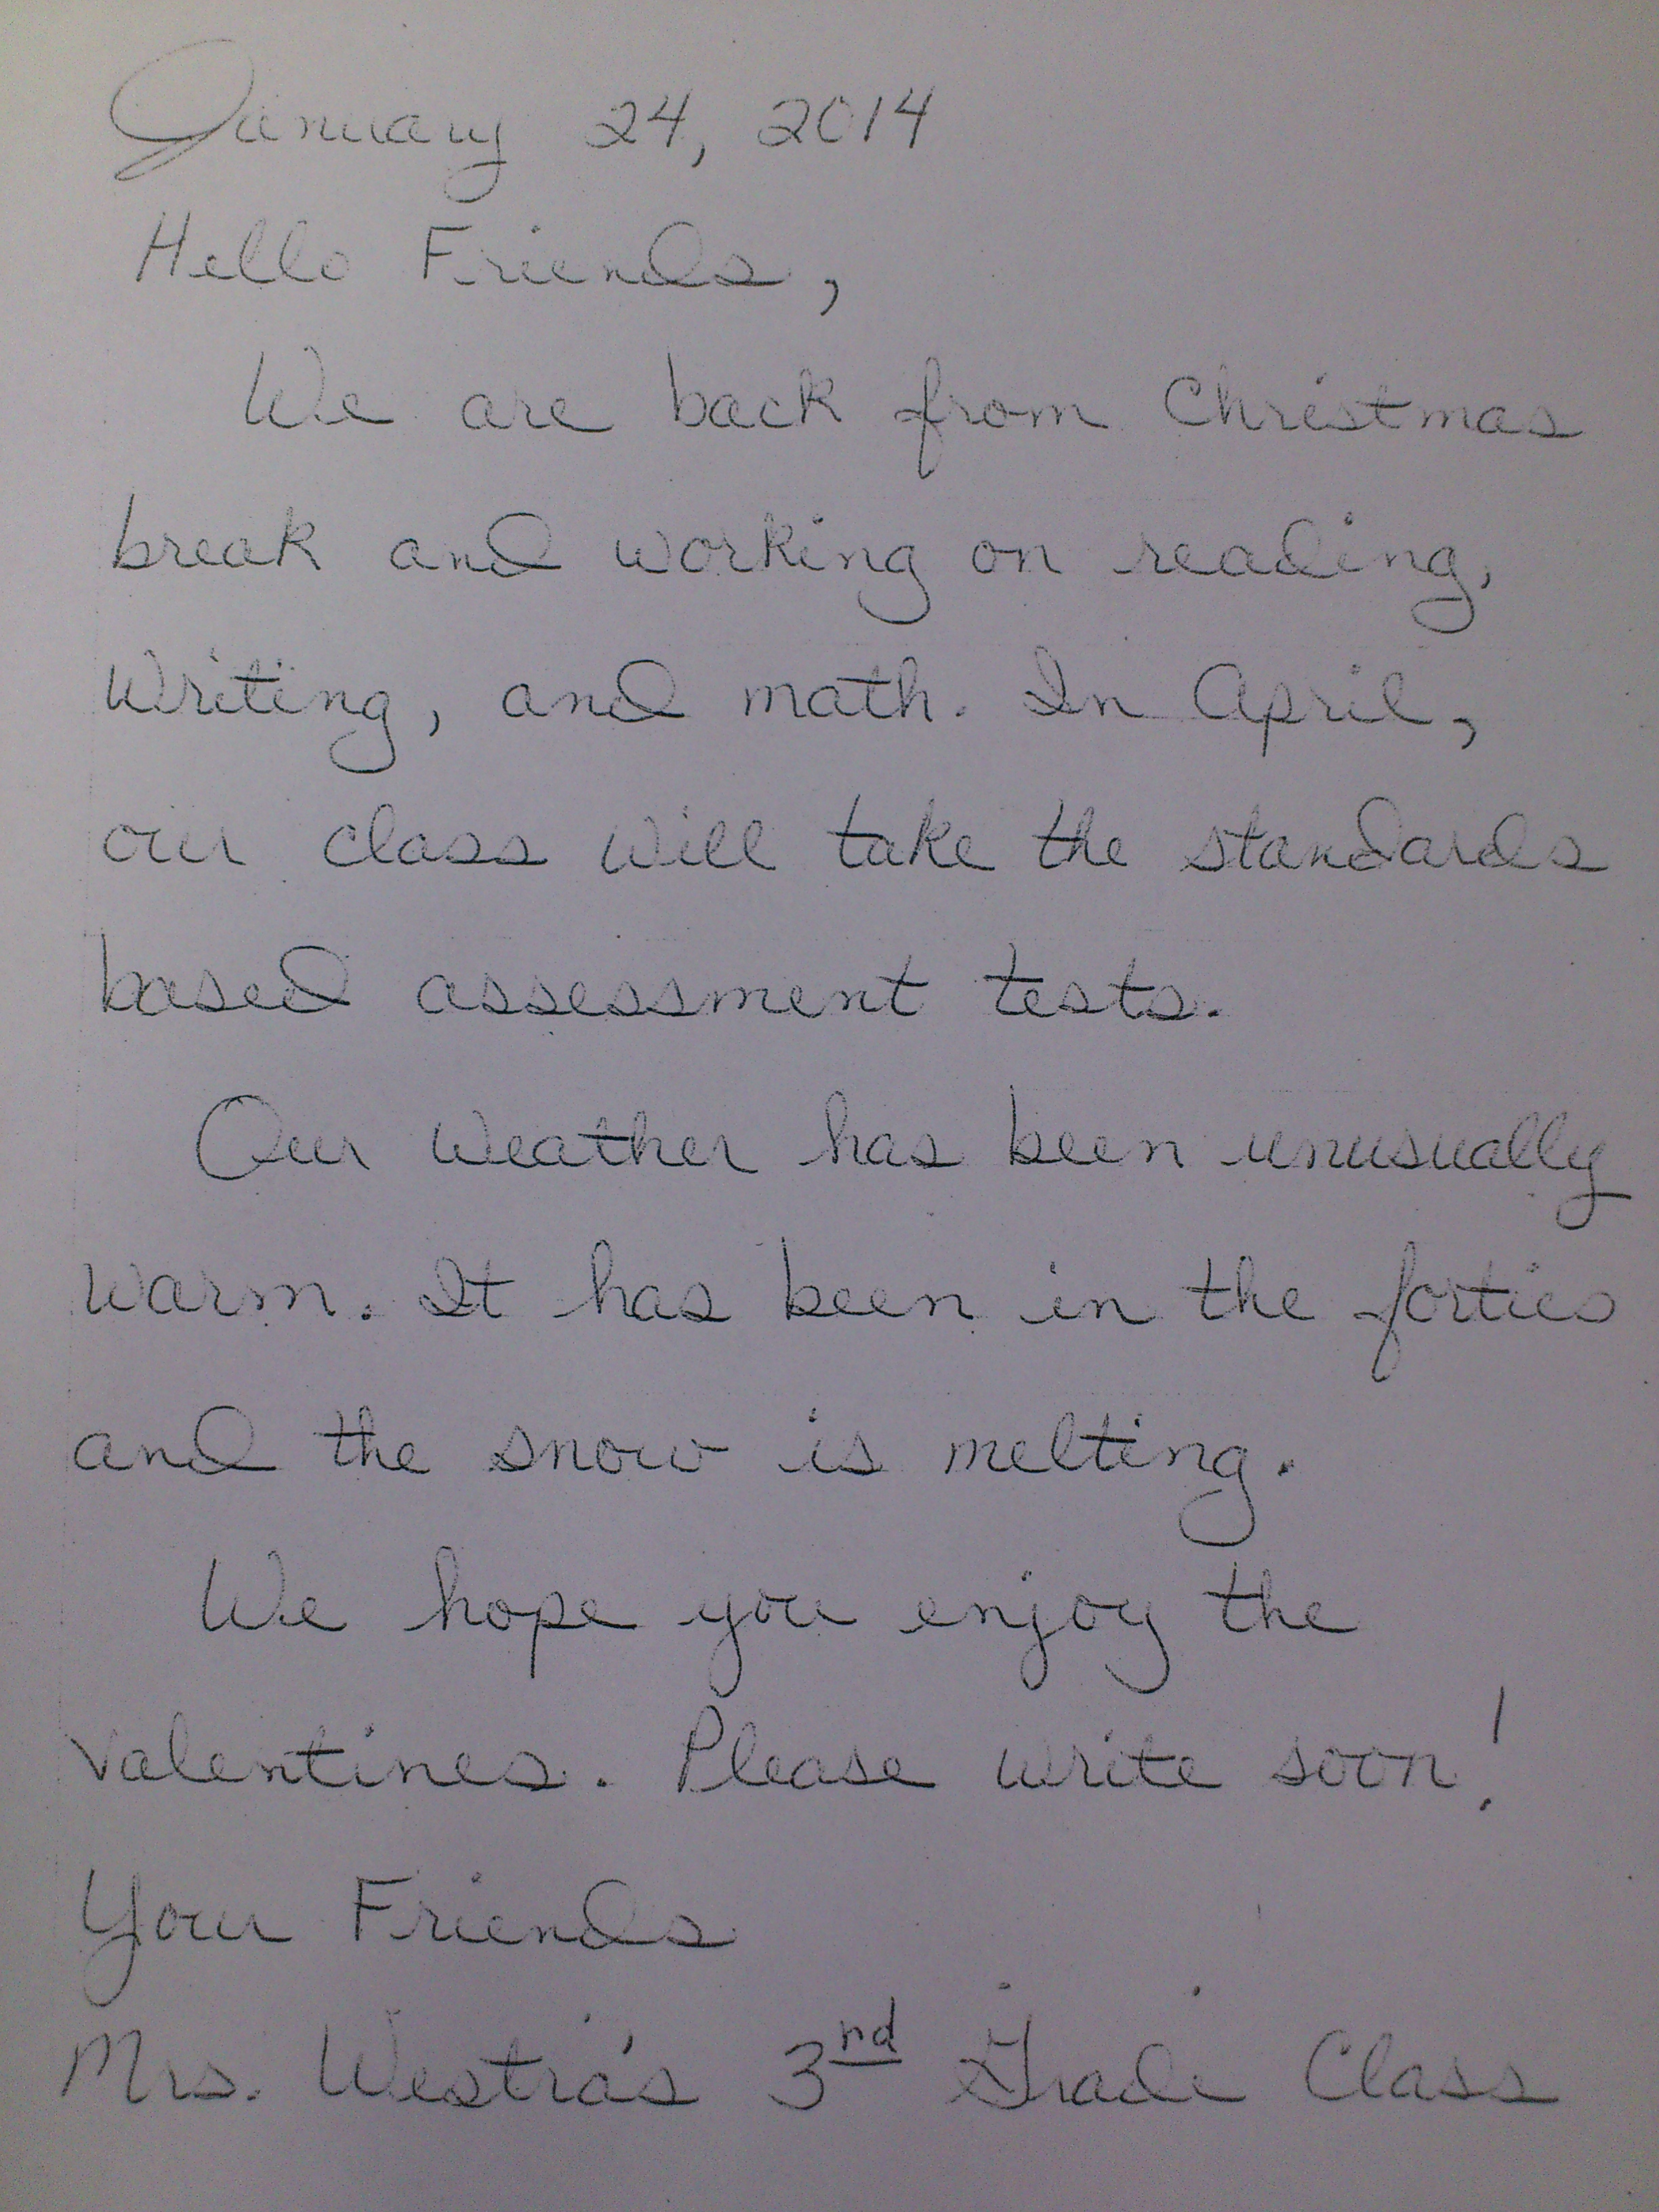 January 24, 2014
Hello Friends,
We are back from Christmas
break and working on reading,
writing, and math. In April,
our class will take the standards
based assessment tests.
Our weather has been unusually
warm. It has been in the forties
and the snow is melting.
We hope you enjoy the
valentines. Please write soon!
Your Friends
Mrs. Westra's 3rd Grade Class